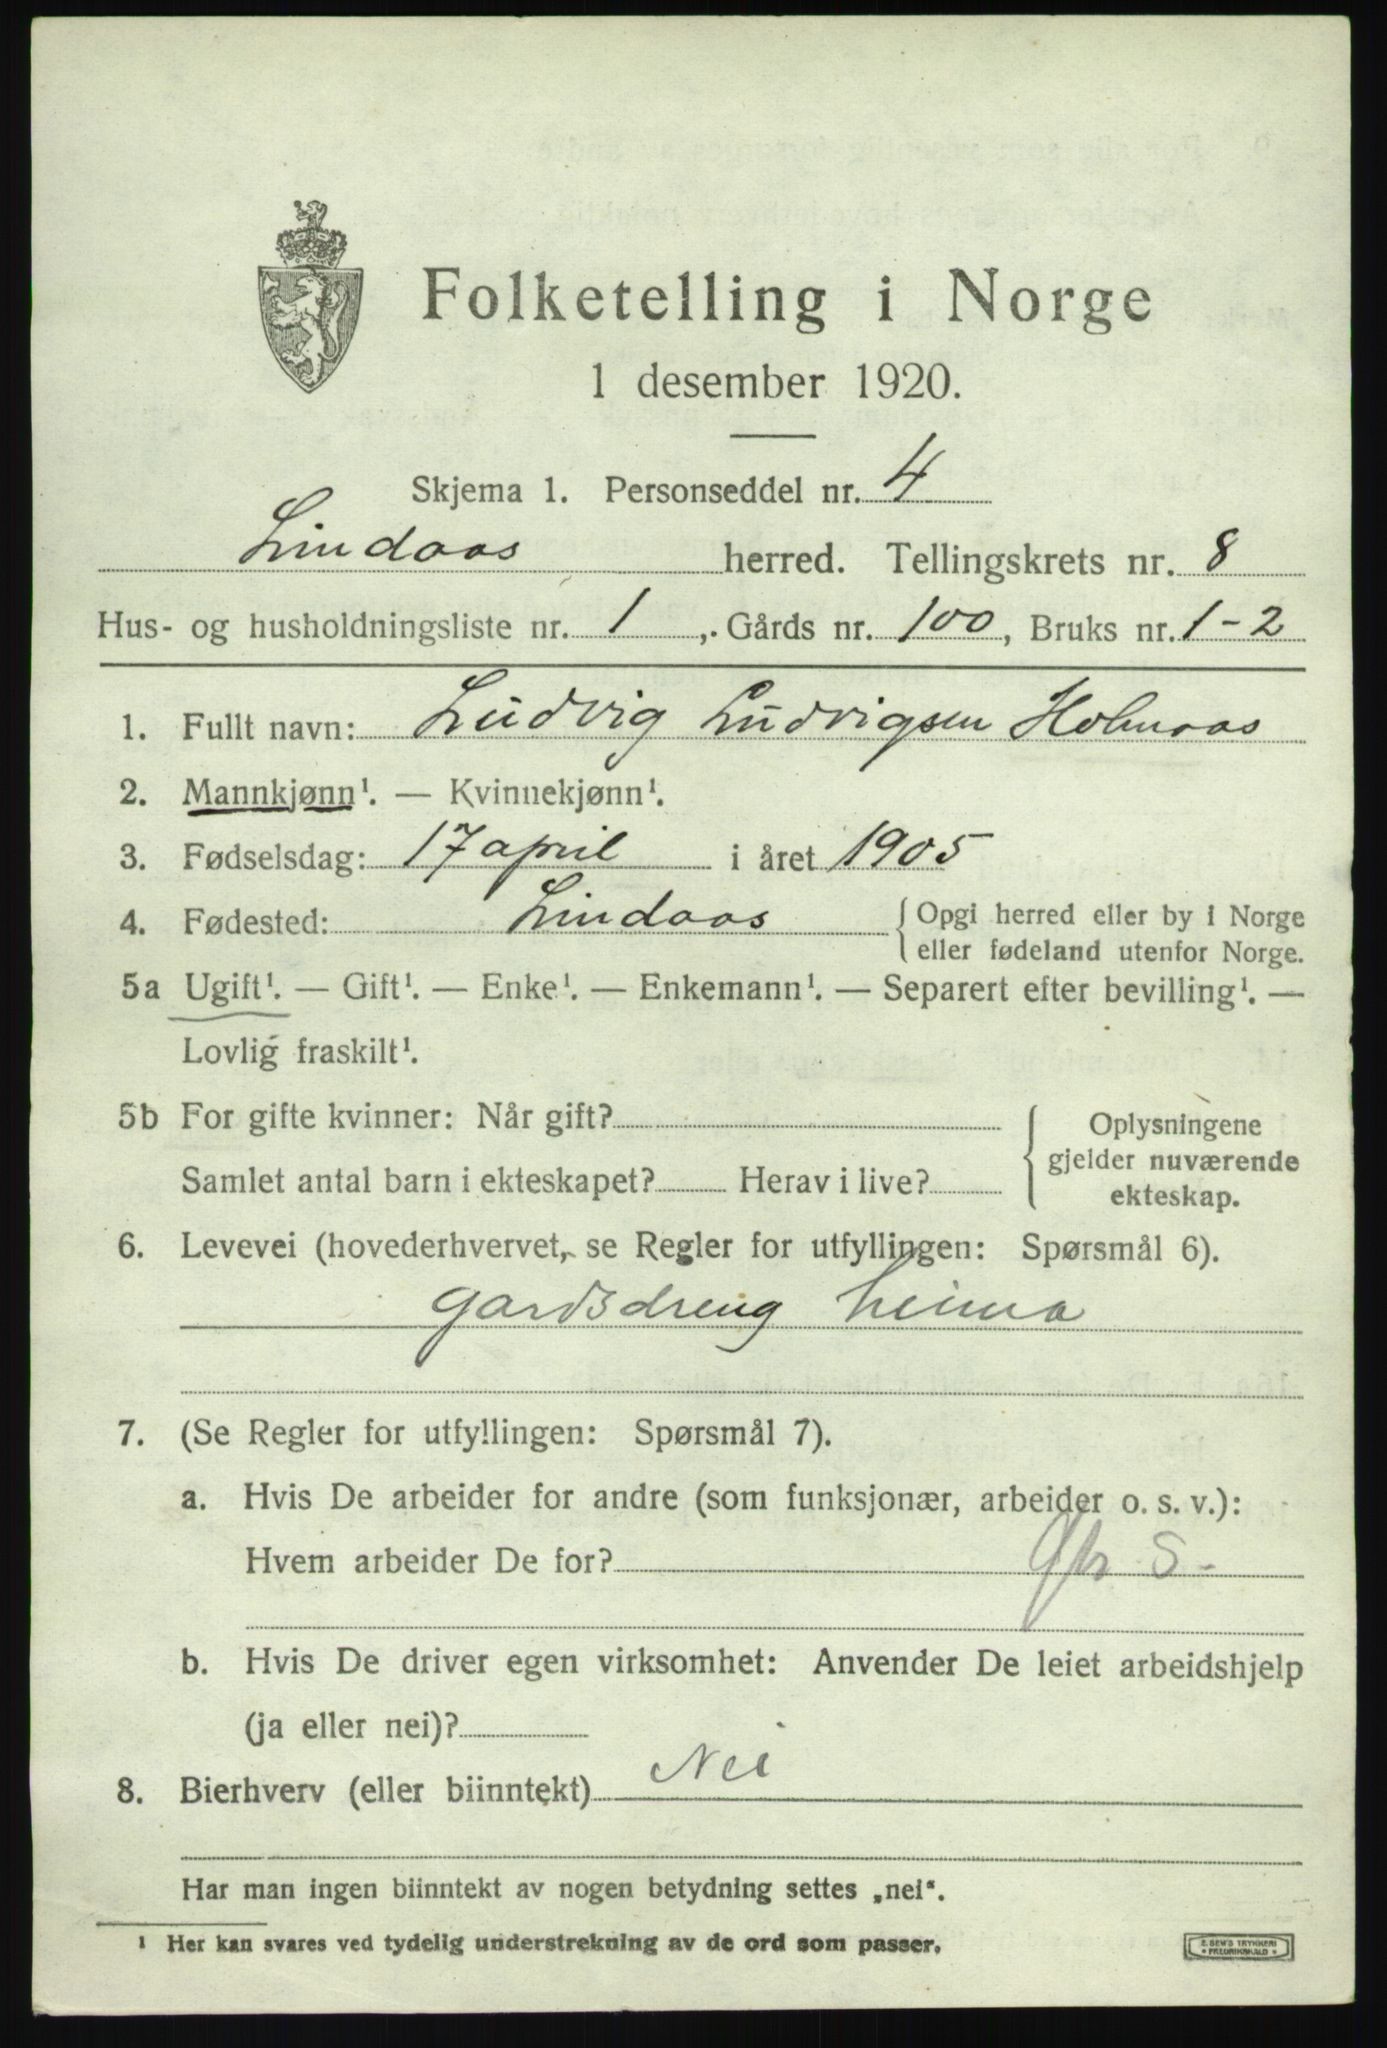 Folketelling i Norge
1 desember 1920.
Skjema 1. Personseddel nr. 4
Lindaas herred. Tellingskrets nr. 8
Hus- og husholdningsliste nr. 1, Gårds nr. 100, Bruks nr. 1-2
1. Fullt navn: Ludvig Ludvigsen Holmaas
2. Mannkjønn¹. — Kvinnekjønn¹.
3. Fødselsdag: 17 april i året 1905
4. Fødested: Lindaas { Opgi herred eller by i Norge
eller fødeland utenfor Norge.
5a Ugift¹. — Gift¹. — Enke¹. — Enkemann¹. — Separert efter bevilling¹. —
Lovlig fraskilt¹.
5b For gifte kvinner: Når gift?
Samlet antal barn i ekteskapet? Herav i live?
{ Oplysningene
gjelder nuværende
ekteskap.
6. Levevei (hovederhvervet, se Regler for utfyllingen: Spørsmål 6).
gardsdreng heima
7. (Se Regler for utfyllingen: Spørsmål 7).
a. Hvis De arbeider for andre (som funksjonær, arbeider o. s. v.):
Hvem arbeider De for? S-
b. Hvis De driver egen virksomhet: Anvender De leiet arbeidshjelp
(ja eller nei)?
8. Bierhverv (eller biinntekt) Nei
Har man ingen biinntekt av nogen betydning settes „nei“.
¹ Her kan svares ved tydelig understrekning av de ord som passer.